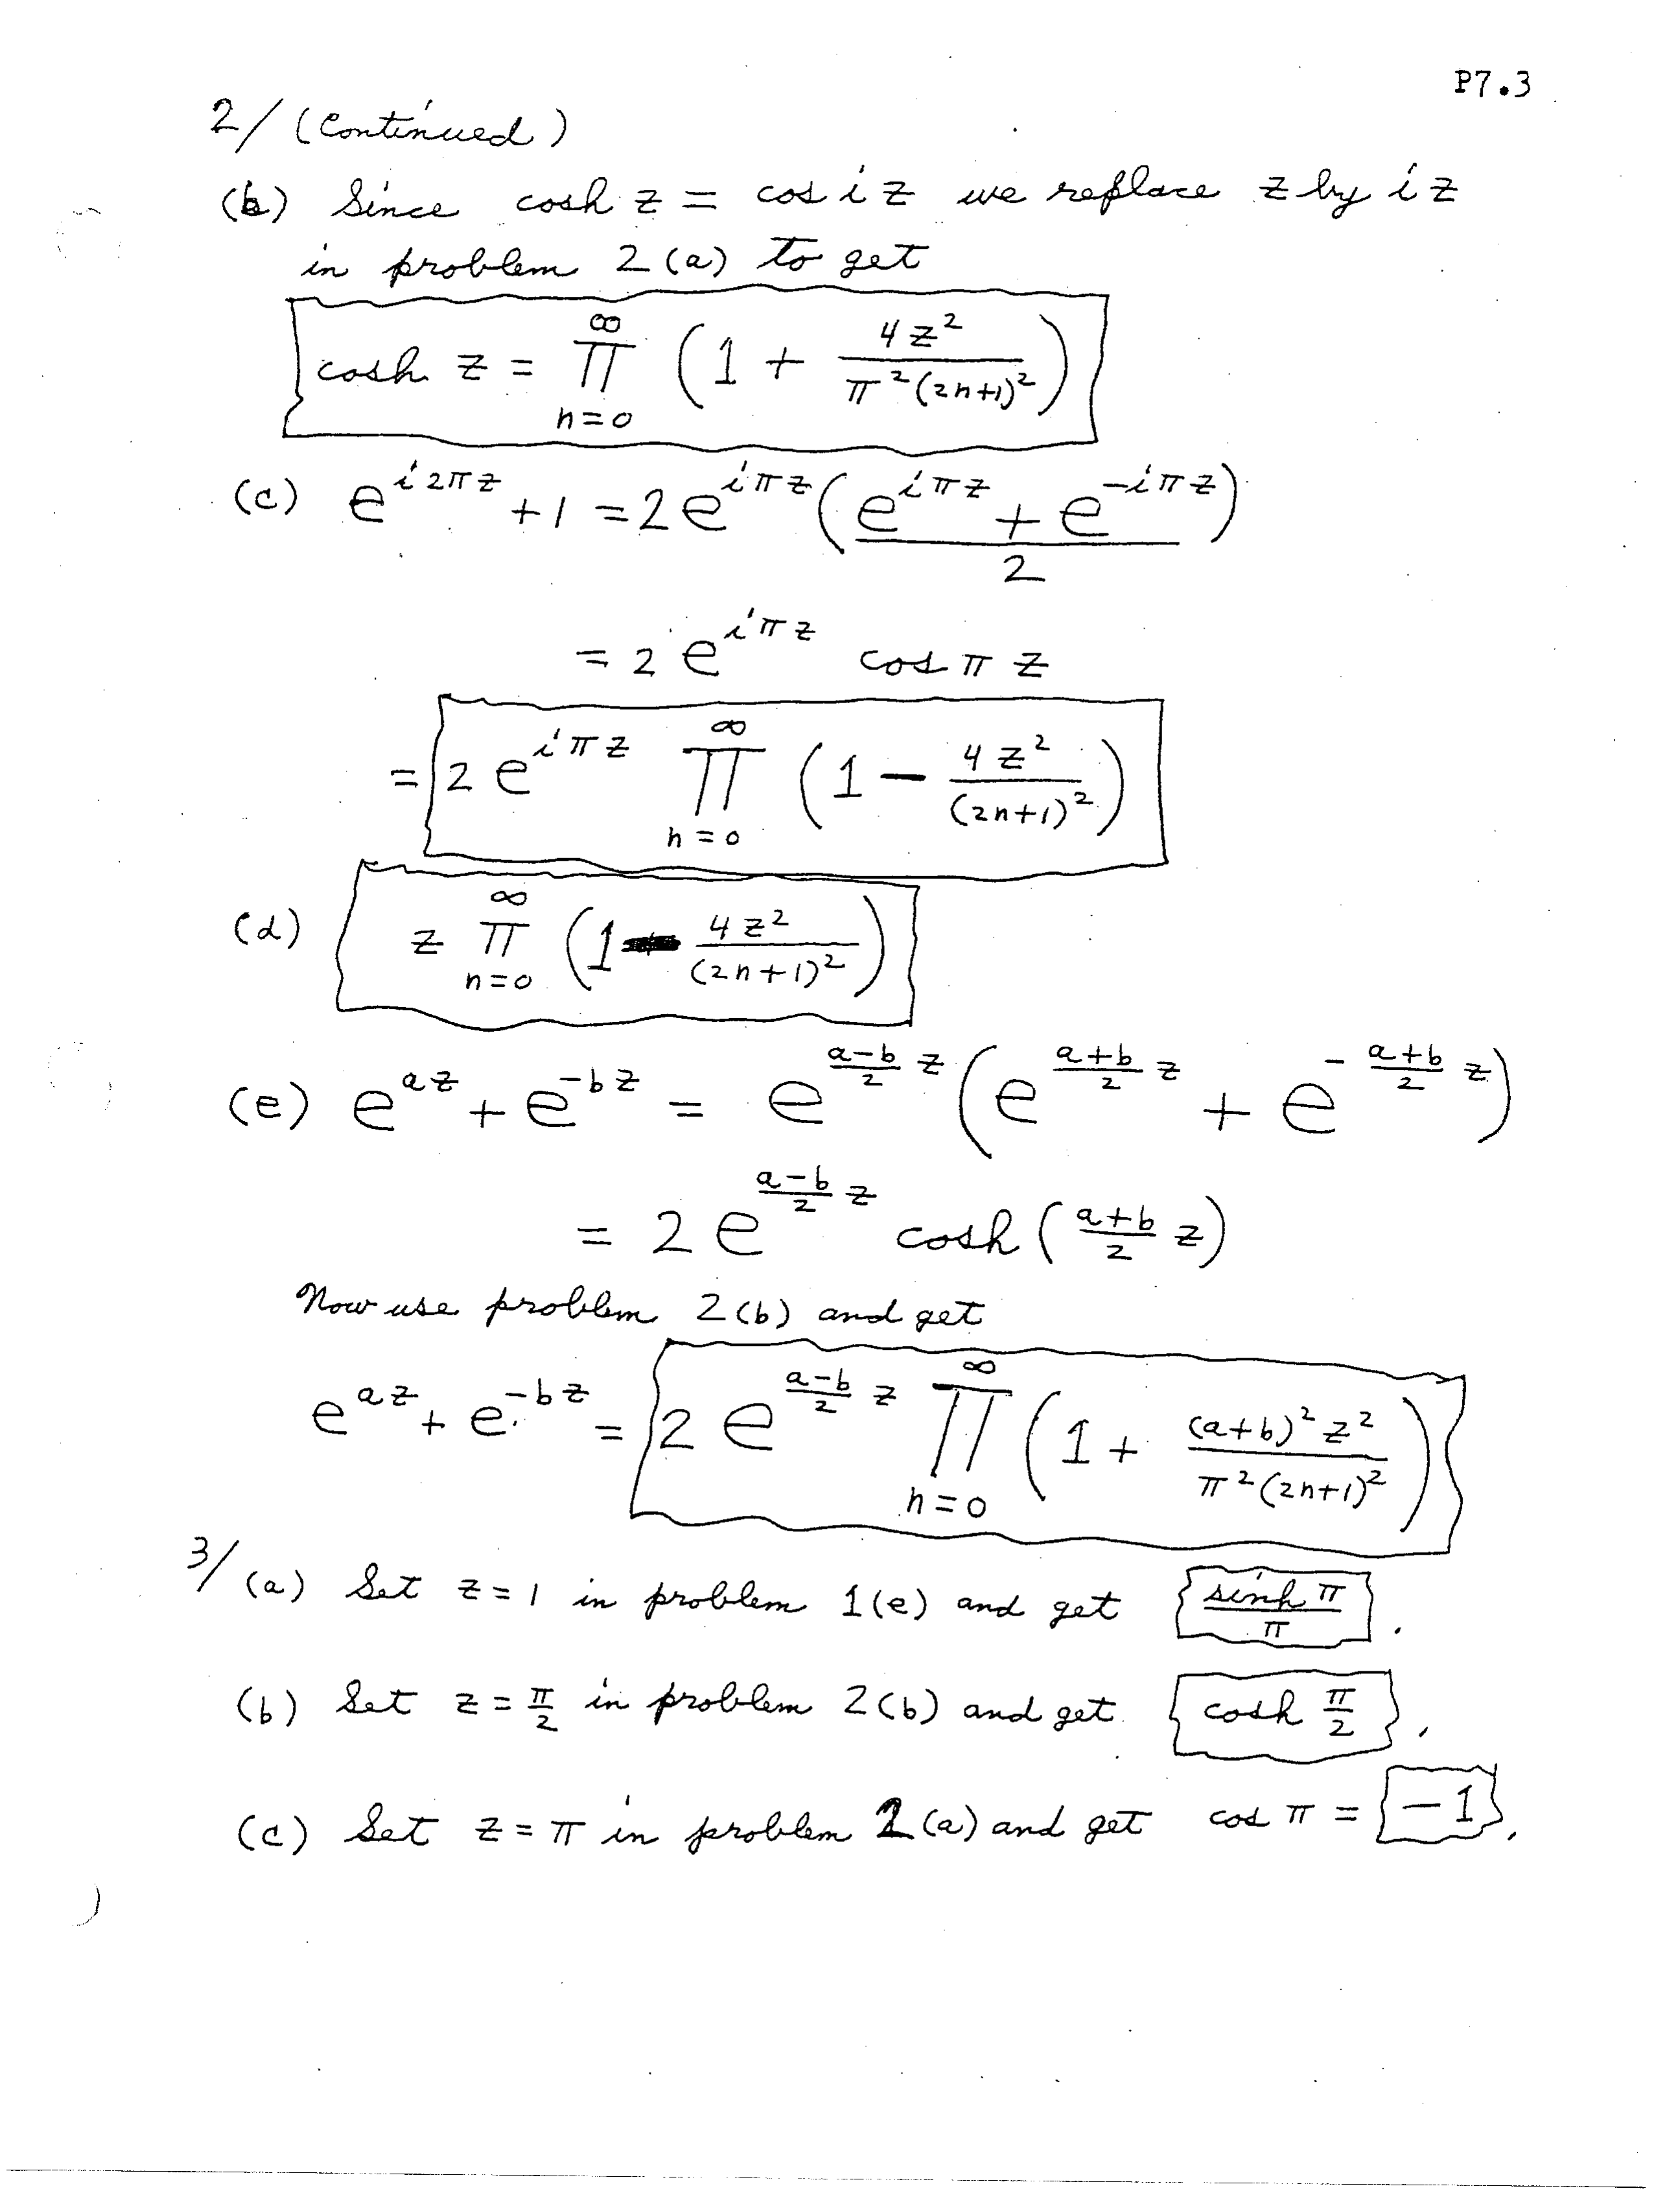 P7.3
2/ (Continued)
(b) Since cosh z = cos i z we replace z by i z
in problem 2(a) to get
cosh z = ∏_{n=0}^{∞} (1 + 4z²/(π²(2n+1)²))
(c) e^{i2πz} + 1 = 2e^{iπz} ((e^{iπz} + e^{-iπz})/2)
= 2 e^{iπz} cos π z
= 2 e^{iπz} ∏_{n=0}^{∞} (1 − 4z²/(2n+1)²)
(d) z ∏_{n=0}^{∞} (1 − 4z²/(2n+1)²)
(e) e^{az} + e^{-bz} = e^{(a-b)/2 z} (e^{(a+b)/2 z} + e^{-(a+b)/2 z})
= 2 e^{(a-b)/2 z} cosh ((a+b)/2 z)
Now use problem 2(b) and get
e^{az} + e^{-bz} = 2 e^{(a-b)/2 z} ∏_{n=0}^{∞} (1 + (a+b)² z²/(π²(2n+1)²))
3/ (a) Set z = 1 in problem 1(e) and get sinh π/π .
(b) Set z = π/2 in problem 2(b) and get cosh π/2 ,
(c) Set z = π in problem 2(a) and get cos π = −1 ,